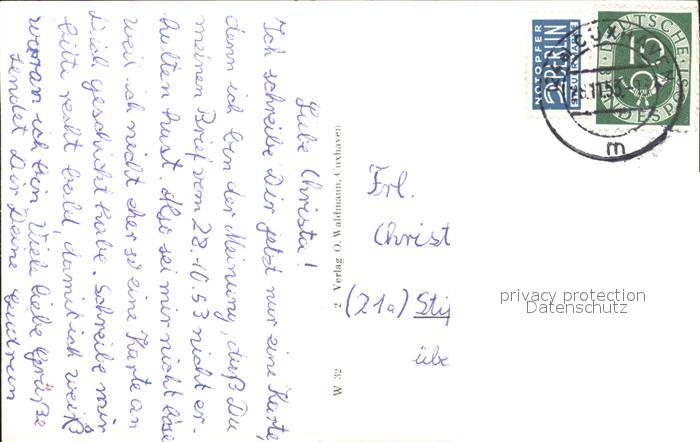 Liebe Christa!
Ich schreibe Dir jetzt nur eine Karte,
denn ich bin der Meinung, daß Du
meinen Brief vom 28.10.53 nicht er-
halten hast. Also sei mir nicht böse
weil ich nicht eher so eine Karte an
Dich geschickt habe. Schreibe mir
bitte recht bald, damit ich weiß
woran ich bin. Viele liebe Grüße
sendet Dir Deine Gudrun
W 32
2
Verlag O. Waldmann, Cuxhaven
NOTOPFER
2 BERLIN
STEUERMARKE
DEUTSCHE
BUNDESPOST
10
CUXHAVEN
.11.53
m
Frl.
Christ
(21a) Sti
übe
privacy protection
Datenschutz